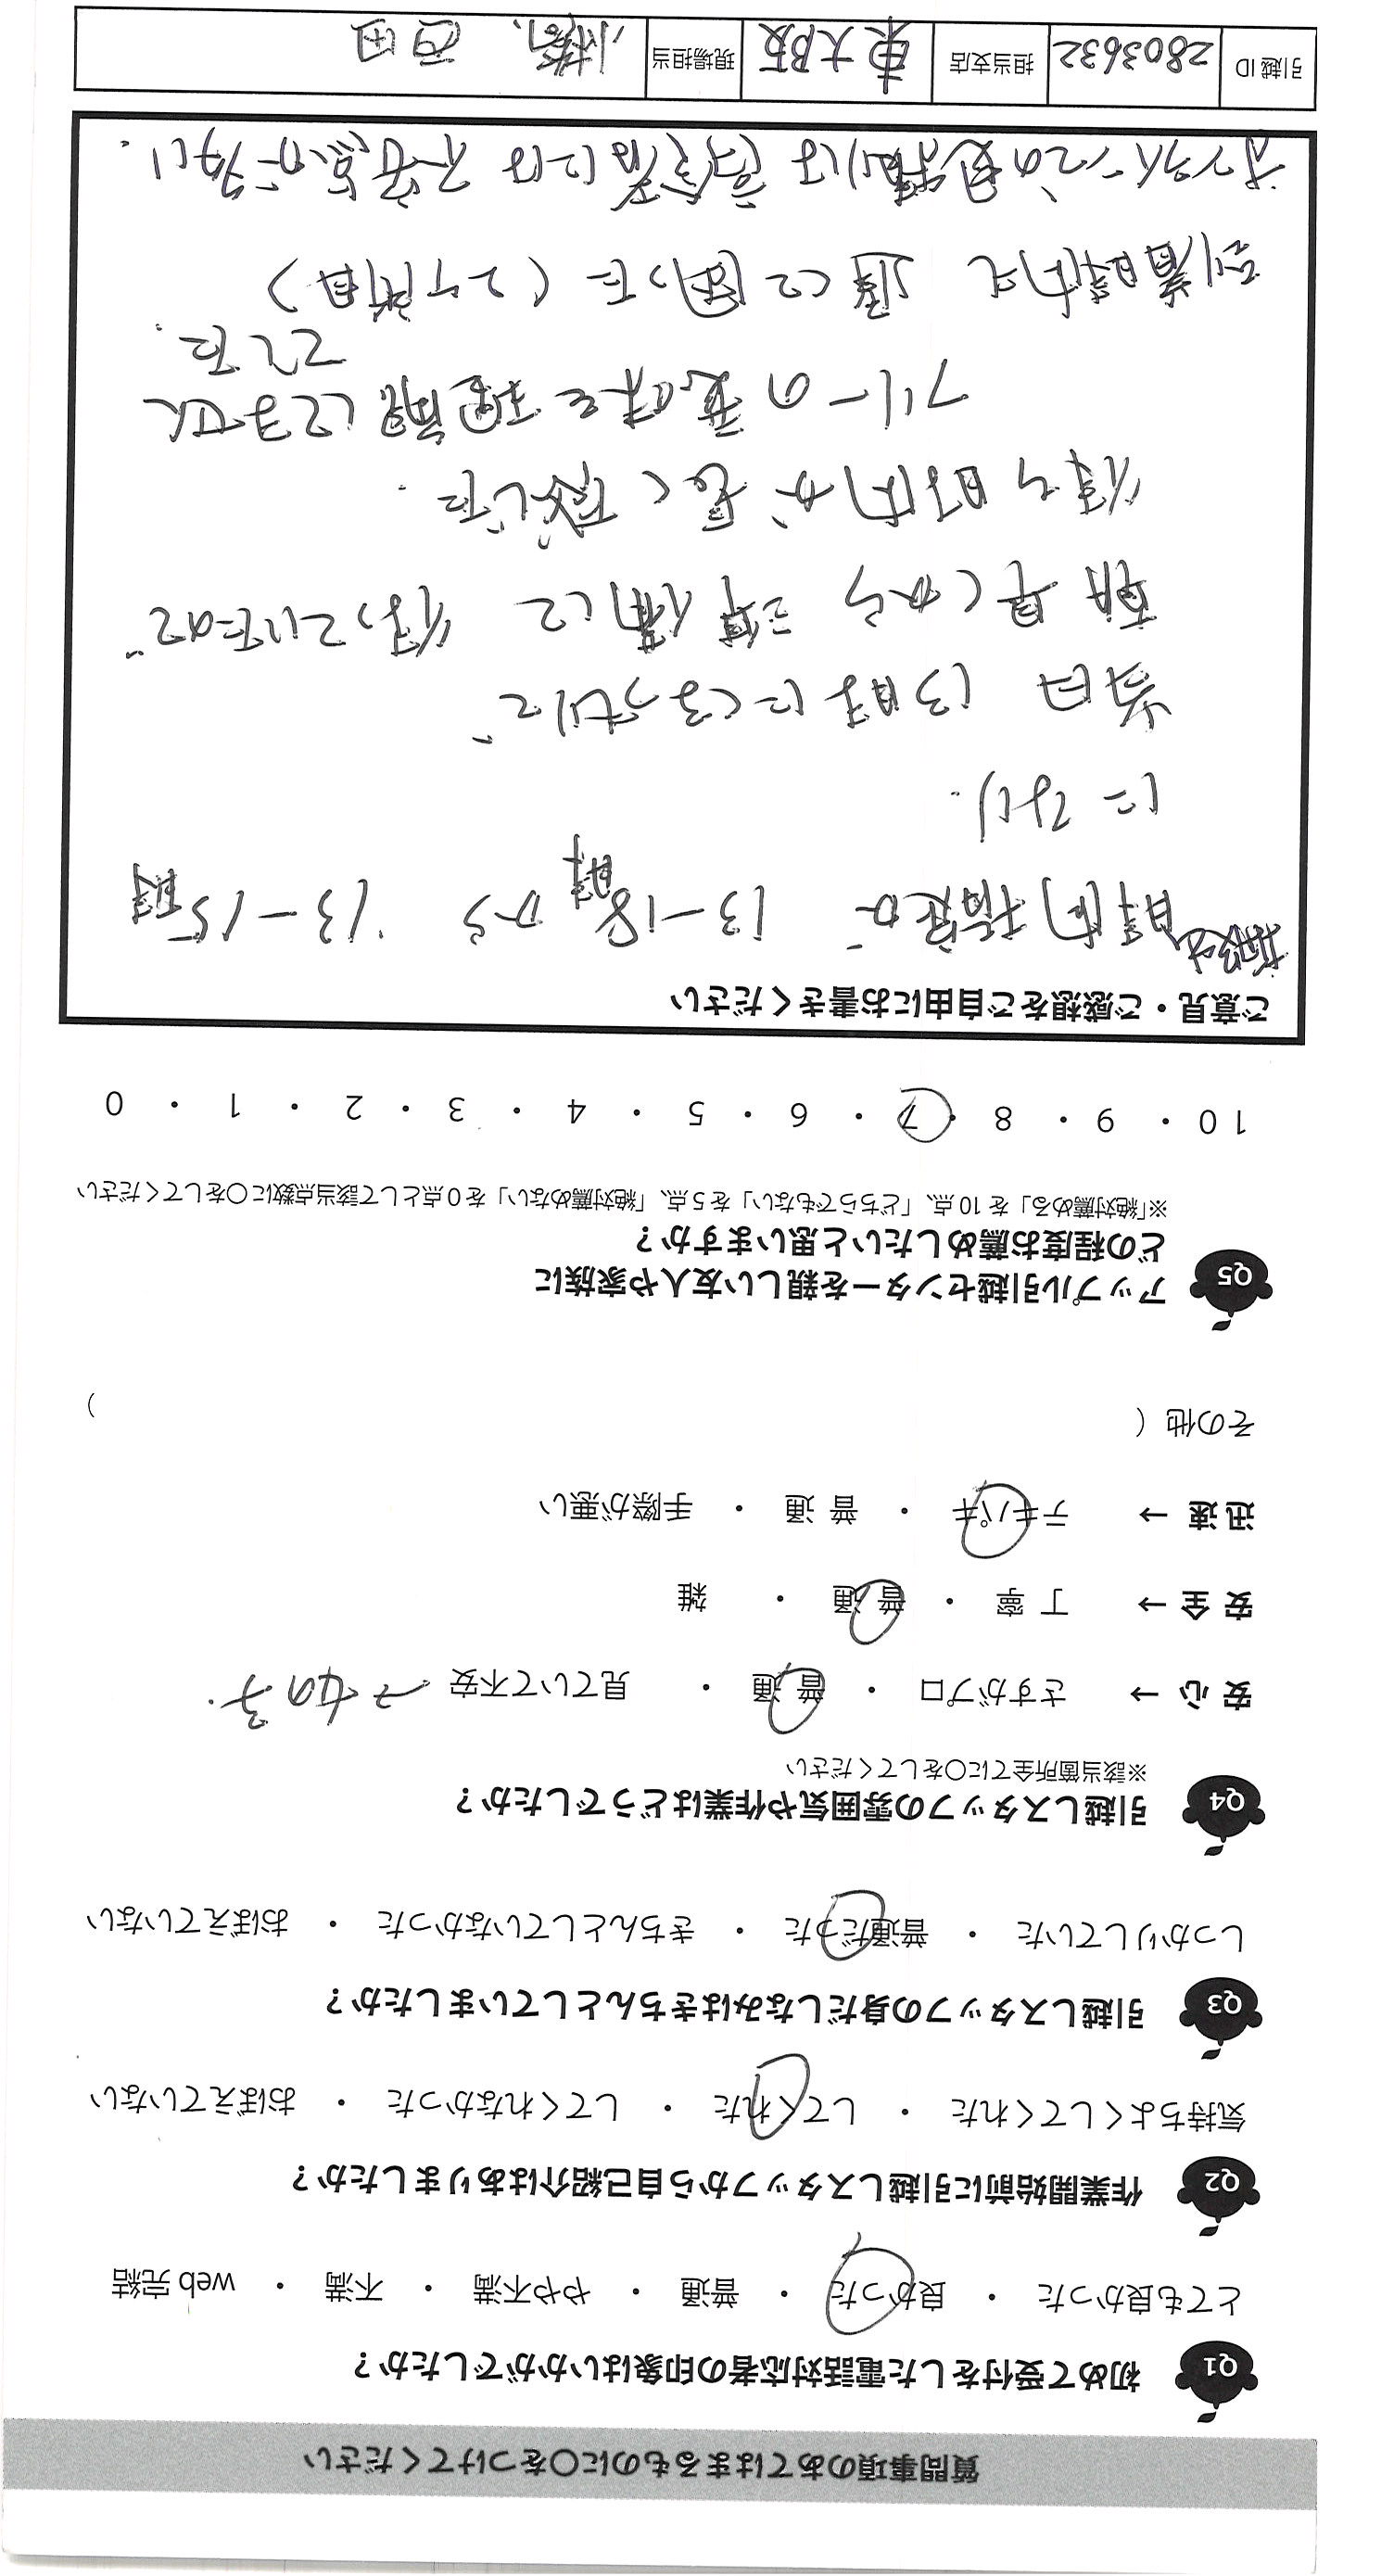 質問事項のあてはまるものに○をつけてください
Q1 初めて受付をした電話対応者の印象はいかがでしたか？
とても良かった ・ 良かった ・ 普通 ・ やや不満 ・ 不満 ・ web 完結
Q2 作業開始前に引越しスタッフから自己紹介はありましたか？
気持ちよくしてくれた ・ してくれた ・ してくれなかった ・ おぼえていない
Q3 引越しスタッフの身だしなみはきちんとしていましたか？
しっかりしていた ・ 普通だった ・ きちんとしていなかった ・ おぼえていない
Q4 引越しスタッフの雰囲気や作業はどうでしたか？
※該当箇所全てに○をしてください
安 心 → さすがプロ ・ 普 通 ・ 見ていて不安 女の子.
安 全 → 丁 寧 ・ 普 通 ・ 雑
迅 速 → テキパキ ・ 普 通 ・ 手際が悪い
その他 ( )
Q5 アップル引越センターを親しい友人や家族に
どの程度お薦めしたいと思いますか？
※「絶対薦める」を 10 点、「どちらでもない」を 5 点、「絶対薦めない」を 0 点として該当点数に○をしてください
10 ・ 9 ・ 8 ・ 7 ・ 6 ・ 5 ・ 4 ・ 3 ・ 2 ・ 1 ・ 0
ご意見・ご感想をご自由にお書きください
搬出
時間指定が 13-18時から 13-15時
になり.
当日 13時にくるって
朝早くから準備して 待っていたので
待ち時間が長く感じた.
フリーの意味を理解してません
でした.
到着時間も遅くて困った（2ケ所目）
オンラインでの見積りは高令者には不安感が高い.
引越 ID 2803632 担当支店 東大阪 現場担当 小椿、百田